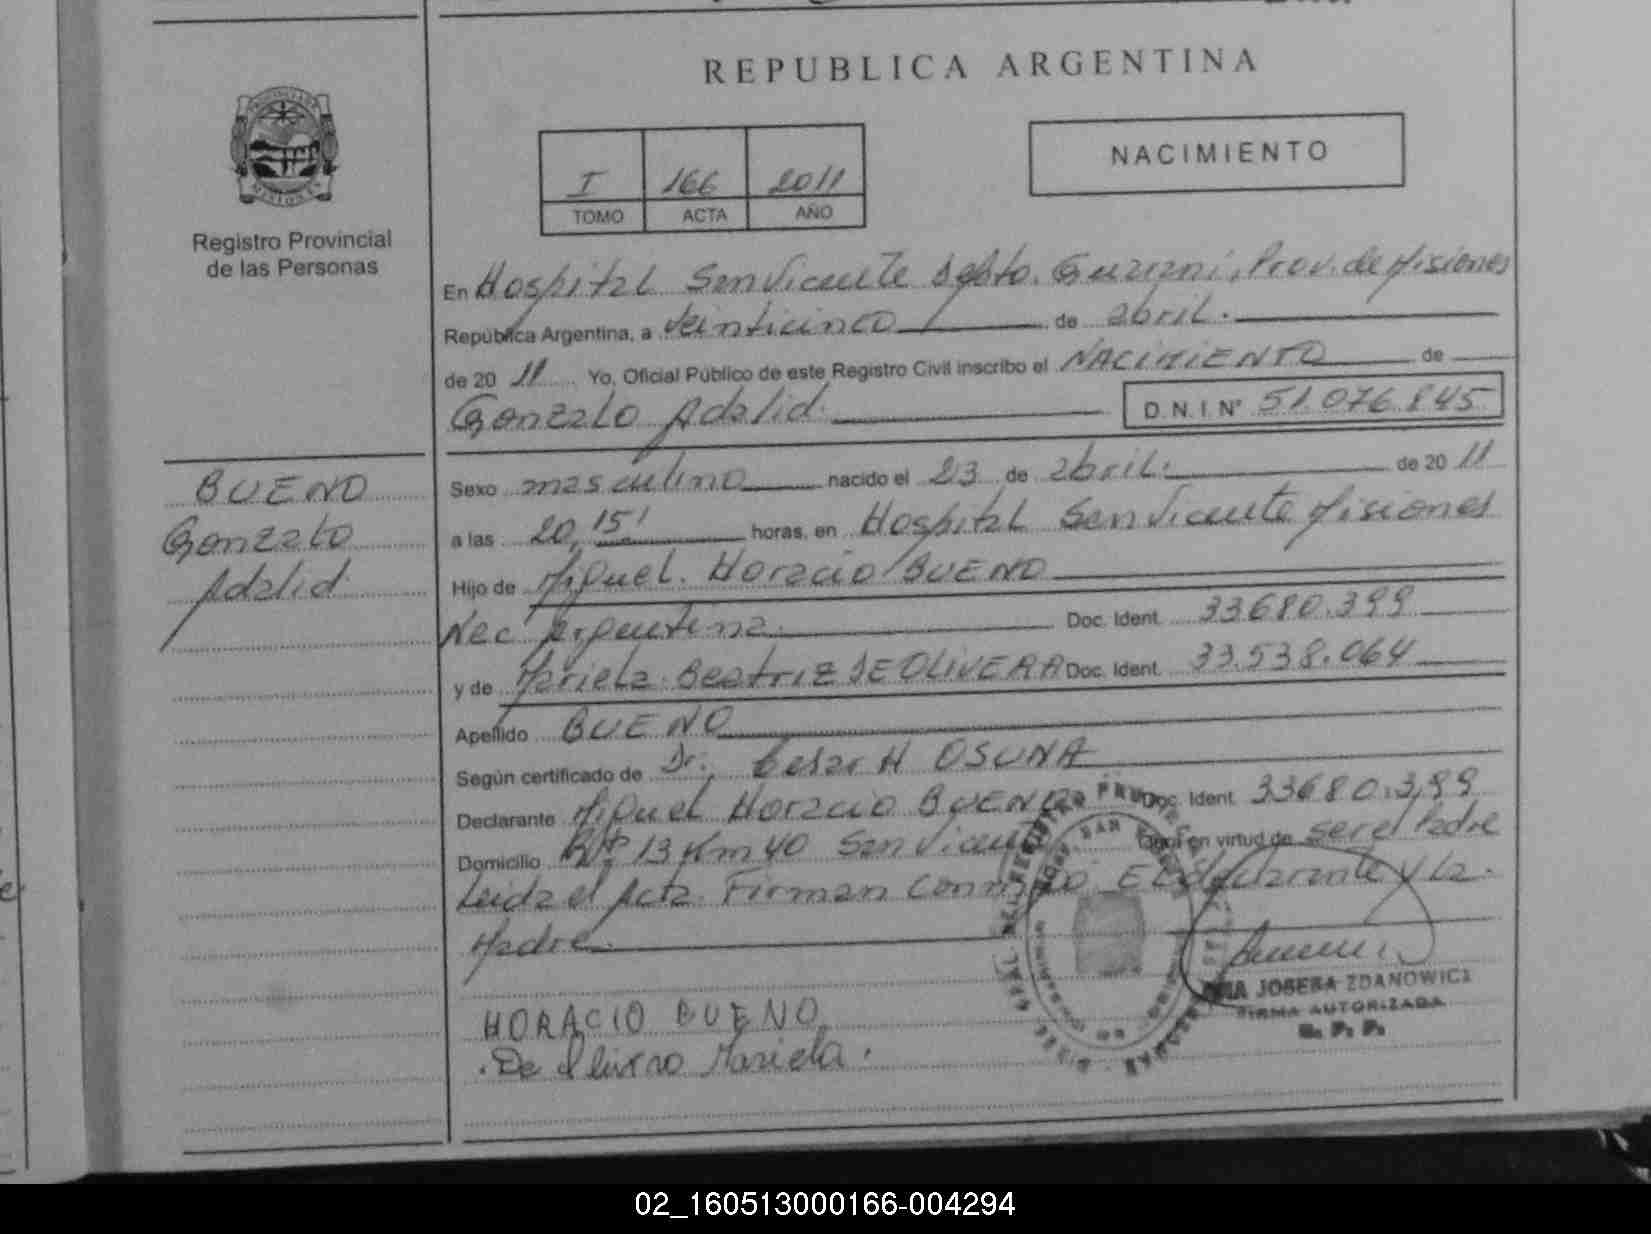 REPUBLICA ARGENTINA
PROVINCIA DE
MISIONES
Registro Provincial
de las Personas
I 166 2011
TOMO ACTA AÑO
NACIMIENTO
En Hospital San Vicente Depto. Guarani, Prov. de Misiones
República Argentina, a veinticinco de abril.
de 2011 Yo, Oficial Público de este Registro Civil inscribo el NACIMIENTO de
Gonzalo Adalid. D.N.I. Nº 51.076.845
BUENO
Gonzalo
Adalid
Sexo masculino nacido el 23 de abril. de 2011
a las 20,15' horas, en Hospital San Vicente Misiones
Hijo de Miguel. Horacio BUENO
Nac Argentina. Doc. Ident. 33680.399
y de Mariela Beatriz DE OLIVERA Doc. Ident. 33.538.064
Apellido BUENO
Según certificado de Dr. Cesar H OSUNA
Declarante Miguel Horacio BUENO Doc. Ident. 33680.399
Domicilio 13 Km 40 San Vicente en virtud de ser el Padre
Leida el Acta. Firman Conmigo El declarante y la.
Madre.
HORACIO BUENO
De Mariela.
JOSEFA ZDANOWICZ
FIRMA AUTORIZADA
R. P. P.
02_160513000166-004294